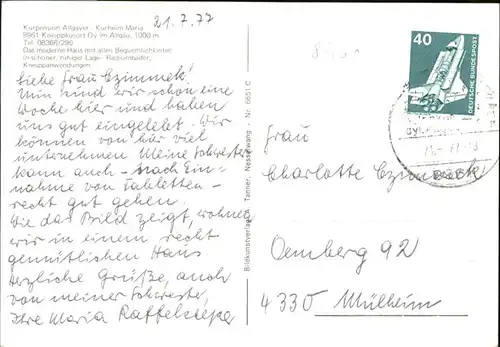 Kurpension Allgayer - Kurheim Maria
8961 Kneippkurort Oy im Allgäu, 1000 m
Tel. 08366/296
Das moderne Haus mit allen Bequemlichkeiten
in schöner, ruhiger Lage - Radiumbäder,
Kneippanwendungen
21.7.77
Liebe Frau Czimmek!
Nun sind wir schon eine
Woche hier und haben
uns gut eingelebt. Wir
können von hier viel
unternehmen. Meine Schwester
kann auch - nach Ein-
nahme von Tabletten -
recht gut gehen.
Wie das Bild zeigt, wohnen
wir in einem recht
gemütlichen Haus.
Herzliche Grüße, auch
von meiner Schwester,
Ihre Maria
Bildkunstverlag Tanner, Nesselwang - Nr. 6651 C
40
DEUTSCHE BUNDESPOST
Frau
Charlotte Czimmek
Oemberg 92
4330 Mülheim